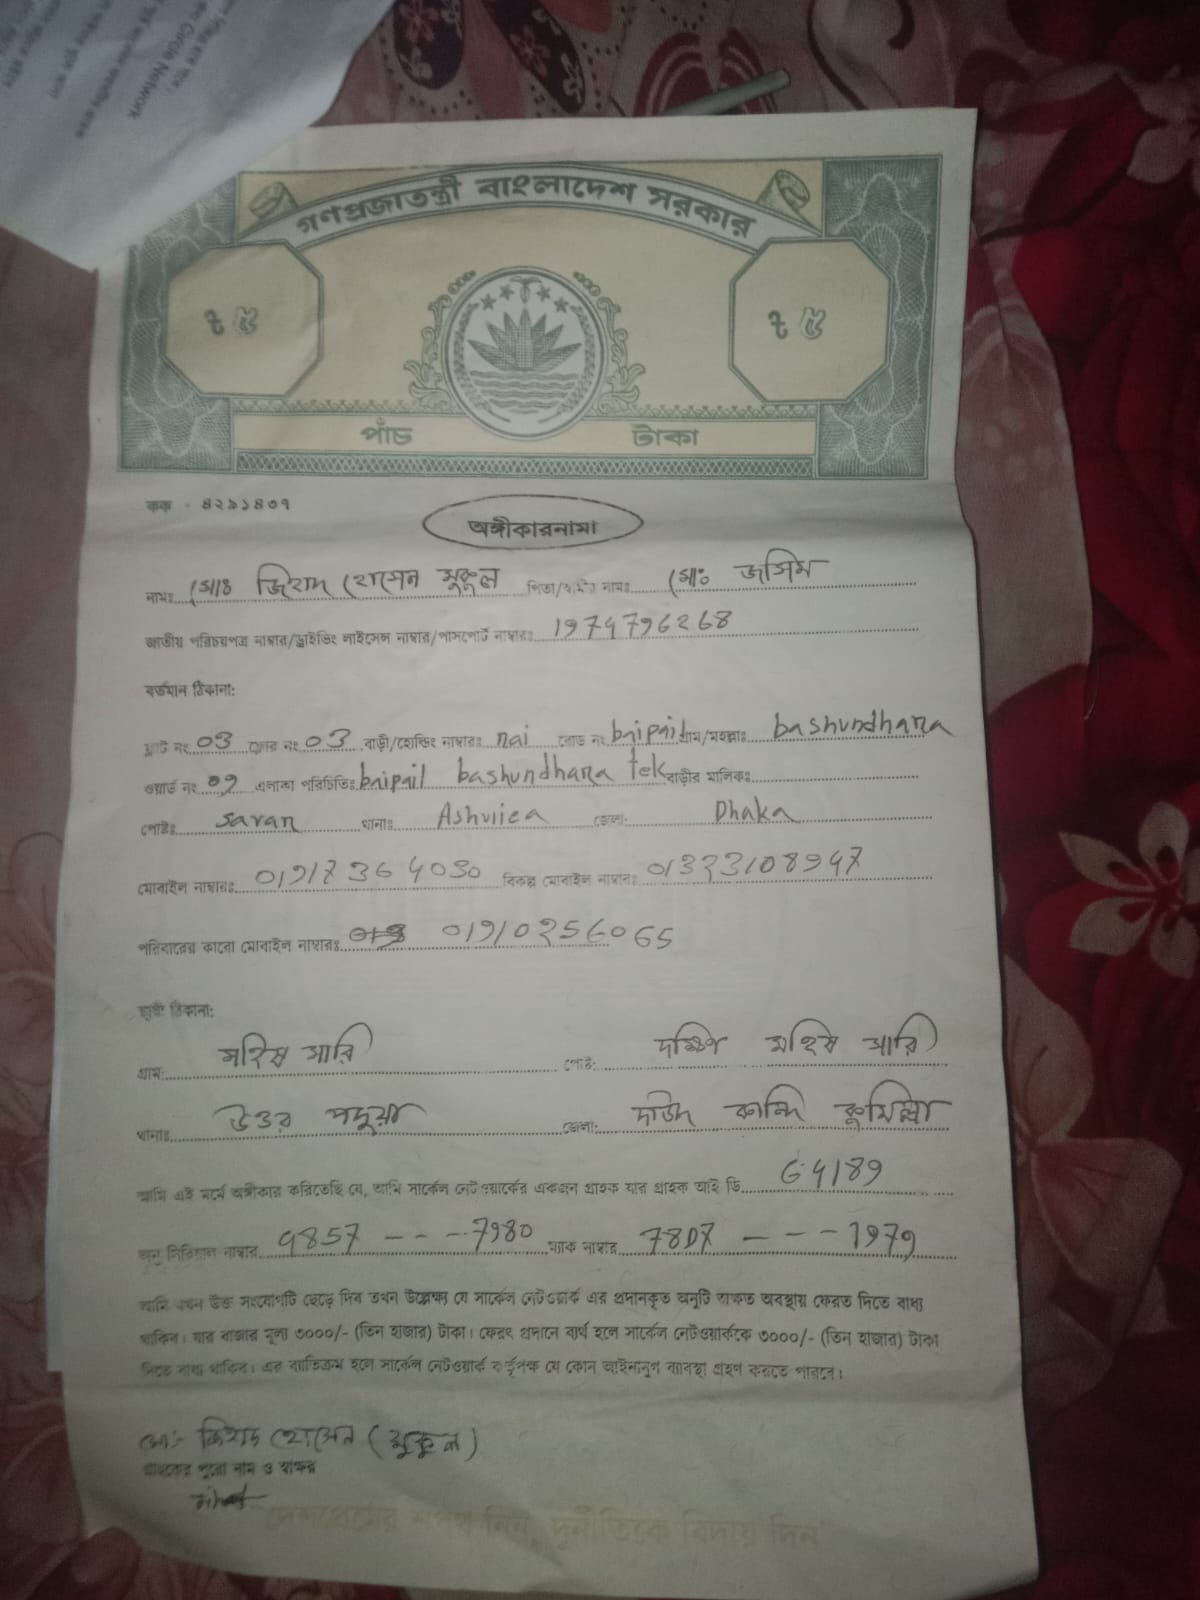 Circle Network
গণপ্রজাতন্ত্রী বাংলাদেশ সরকার
৳ ৫ ৳ ৫
পাঁচ টাকা
কক - ৪২৯১৪৩৭
অঙ্গীকারনামা
নামঃ মোঃ জিহাদ হোসেন মুকুল পিতা/স্বামীর নামঃ মোঃ জসিম
জাতীয় পরিচয়পত্র নাম্বার/ড্রাইভিং লাইসেন্স নাম্বার/পাসপোর্ট নাম্বারঃ 1974796268
বর্তমান ঠিকানা:
ফ্লাট নং 03 ফ্লোর নং 03 বাড়ী/হোল্ডিং নাম্বারঃ nai রোড নং baipail গ্রাম/মহল্লাঃ bashundhara
ওয়ার্ড নং 09 এলাকা পরিচিতিঃ baipail bashundhara tek বাড়ীর মালিকঃ
পোষ্টঃ savar থানাঃ Ashuiiea জেলা: Dhaka
মোবাইল নাম্বারঃ 01917364030 বিকল্প মোবাইল নাম্বারঃ 01323108947
পরিবারের কারো মোবাইল নাম্বারঃ 01910256065
স্থায়ী ঠিকানা:
গ্রাম: মহিষ মারি পোষ্ট: দক্ষিণ মহিষ মারি
থানাঃ উত্তর পদুয়া জেলা: দাউদ কান্দি কুমিল্লা
আমি এই মর্মে অঙ্গীকার করিতেছি যে, আমি সার্কেল নেটওয়ার্কের একজন গ্রাহক যার গ্রাহক আই ডি 64189
অনু সিরিয়াল নাম্বার 9857 - - - 7980 ম্যাক নাম্বার 78D7 - - - 1979
আমি যখন উক্ত সংযোগটি ছেড়ে দিব তখন উল্লেক্ষ্য যে সার্কেল নেটওয়ার্ক এর প্রদানকৃত অনুটি অক্ষত অবস্থায় ফেরত দিতে বাধ্য
থাকিব। যার বাজার মূল্য ৩০০০/- (তিন হাজার) টাকা। ফেরৎ প্রদানে ব্যর্থ হলে সার্কেল নেটওয়ার্ককে ৩০০০/- (তিন হাজার) টাকা
দিতে বাধ্য থাকিব। এর ব্যতিক্রম হলে সার্কেল নেটওয়ার্ক কর্তৃপক্ষ যে কোন আইনানুগ ব্যবস্থা গ্রহণ করতে পারবে।
মো:- জিহাদ হোসেন (মুকুল)
গ্রাহকের পুরো নাম ও স্বাক্ষর
"দেশপ্রেমের শপথ নিন, দুর্নীতিকে বিদায় দিন"